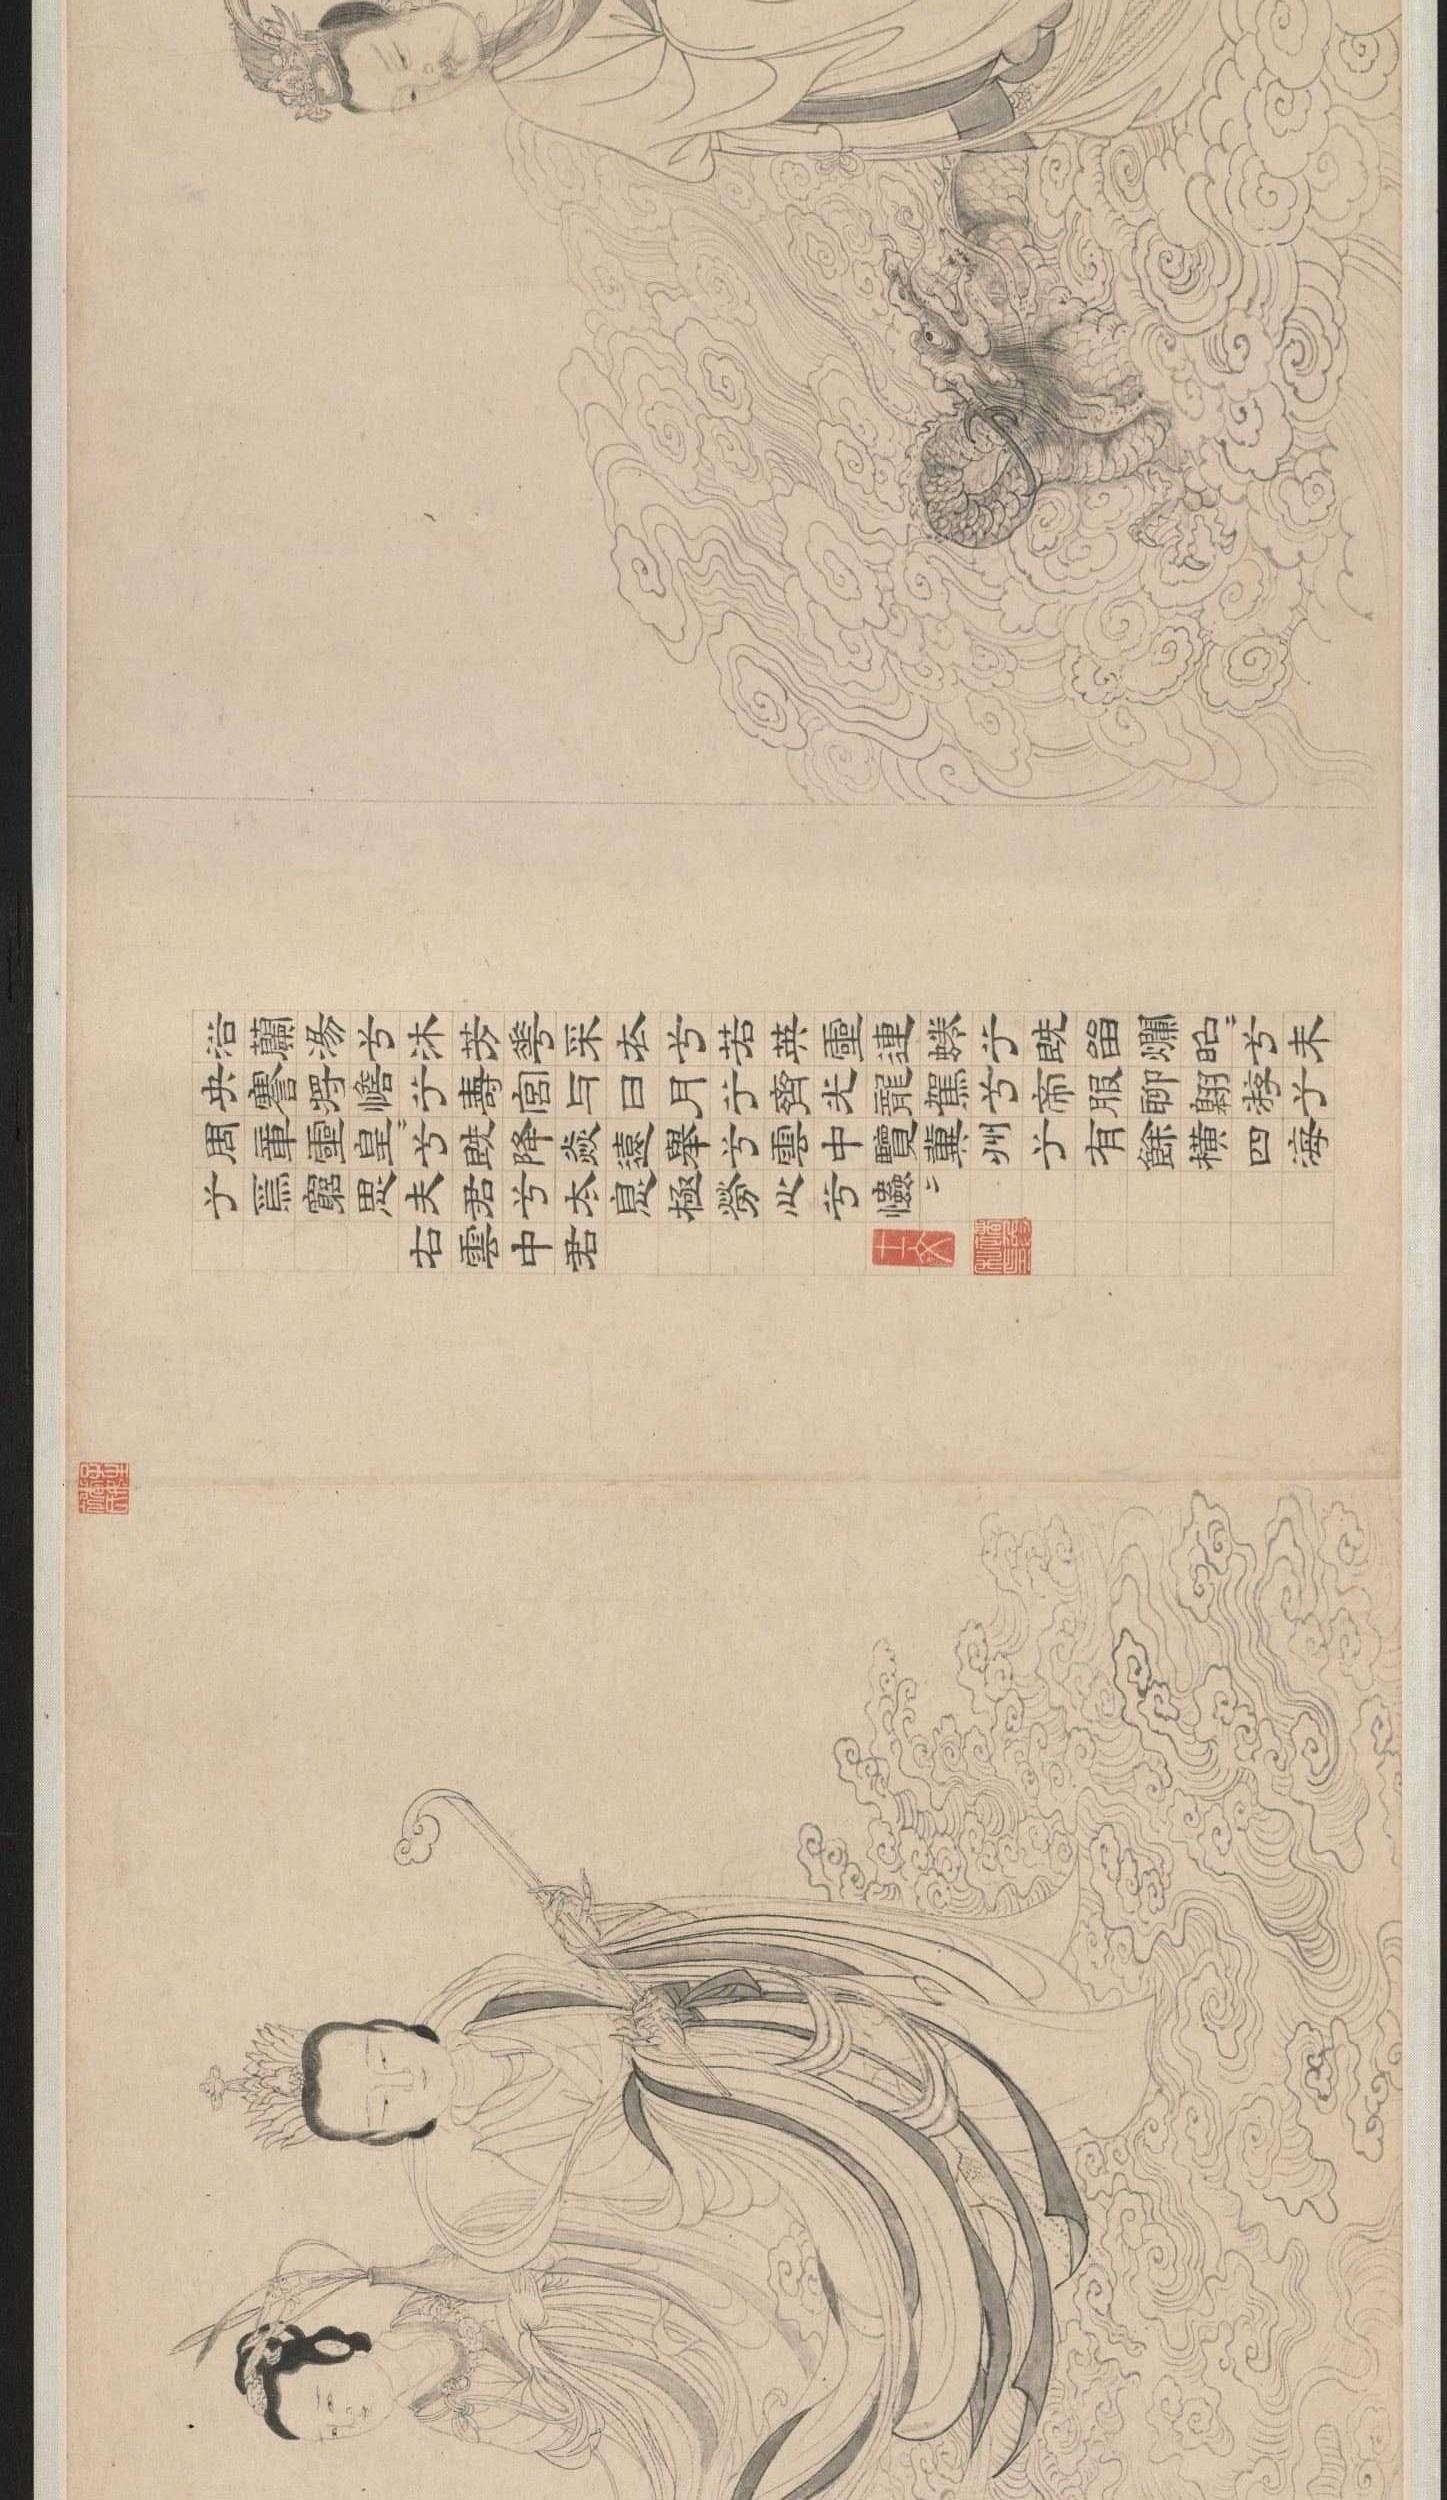 浴蘭湯兮沐芳華采衣兮若英靈連蜷兮既留爛昭〻兮未
央蹇將憺兮壽宮与日月兮齊光龍駕兮帝服聊翱遊兮
周章靈皇〻兮既降猋遠舉兮雲中覽冀州兮有餘橫四海
兮焉窮思夫君兮太息極勞心兮𢥞〻
右雲中君